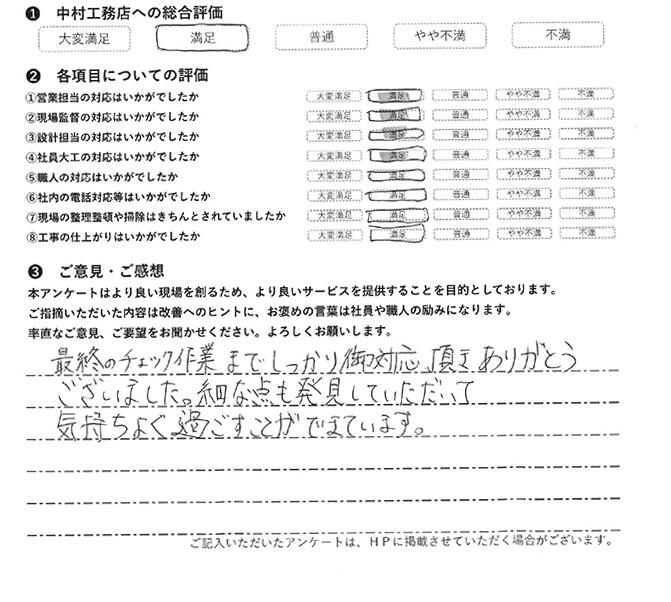 ❶ 中村工務店への総合評価
大変満足 満足 普通 やや不満 不満
❷ 各項目についての評価
①営業担当の対応はいかがでしたか 大変満足 満足 普通 やや不満 不満
②現場監督の対応はいかがでしたか 大変満足 満足 普通 やや不満 不満
③設計担当の対応はいかがでしたか 大変満足 満足 普通 やや不満 不満
④社員大工の対応はいかがでしたか 大変満足 満足 普通 やや不満 不満
⑤職人の対応はいかがでしたか 大変満足 満足 普通 やや不満 不満
⑥社内の電話対応等はいかがでしたか 大変満足 満足 普通 やや不満 不満
⑦現場の整理整頓や掃除はきちんとされていましたか 大変満足 満足 普通 やや不満 不満
⑧工事の仕上がりはいかがでしたか 大変満足 満足 普通 やや不満 不満
❸ ご意見・ご感想
本アンケートはより良い現場を創るため、より良いサービスを提供することを目的としております。
ご指摘いただいた内容は改善へのヒントに、お褒めの言葉は社員や職人の励みになります。
率直なご意見、ご要望をお聞かせください。よろしくお願いします。
最終のチェック作業までしっかり御対応頂きありがとう
ございました。細な点も発見していただいて
気持ちよく過ごすことができています。
ご記入いただいたアンケートは、HPに掲載させていただく場合がございます。